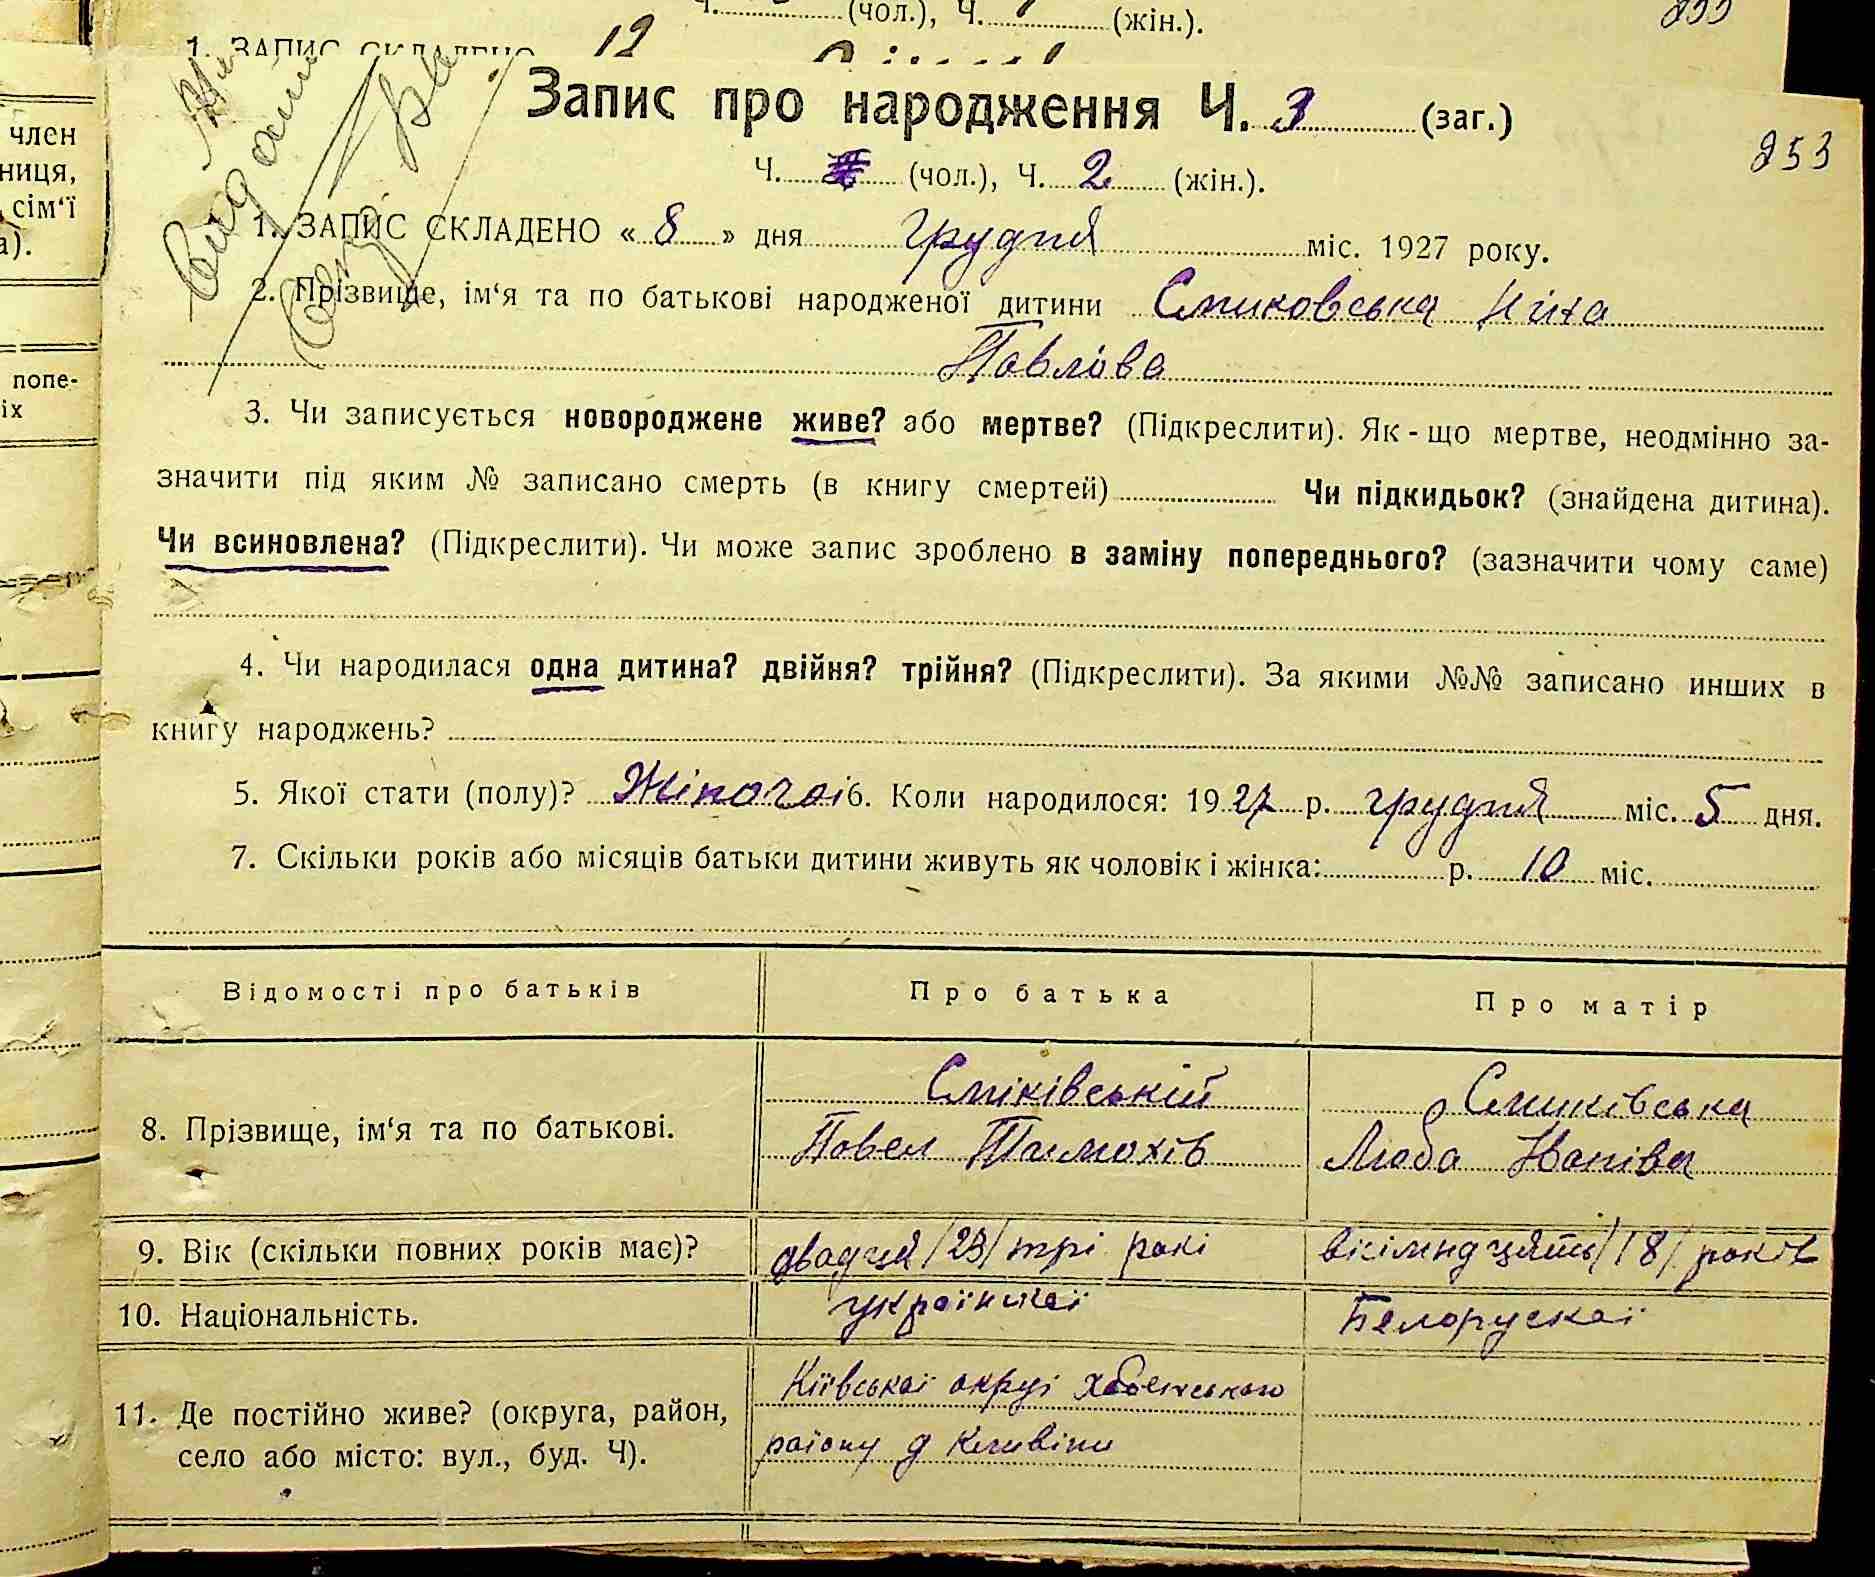 Ч. (чол.), Ч. (жін.).
1. ЗАПИС СКЛАДЕНО 12
член
ниця,
сім‘ї
а).
попе-
іх
Запис про народження Ч. 3 (заг.)
253
Ч. (чол.), Ч. 2 (жін.).
1. ЗАПИС СКЛАДЕНО « 8 » дня грудня міс. 1927 року.
2. Прізвище, ім‘я та по батькові народженої дитини Смиковська Ніна
Павлова
3. Чи записується новороджене живе? або мертве? (Підкреслити). Як-що мертве, неодмінно за-
значити під яким № записано смерть (в книгу смертей) Чи підкидьок? (знайдена дитина).
Чи всиновлена? (Підкреслити). Чи може запис зроблено в заміну попереднього? (зазначити чому саме)
4. Чи народилася одна дитина? двійня? трійня? (Підкреслити). За якими №№ записано инших в
книгу народжень?
5. Якої стати (полу)? Жіночоі 6. Коли народилося: 1927 р. грудня міс. 5 дня.
7. Скільки років або місяців батьки дитини живуть як чоловік і жінка: р. 10 міс.
Відомості про батьків Про батька Про матір
Сміківській Смиківська
8. Прізвище, ім‘я та по батькові. Павел Тимохів Люба Іванівна
9. Вік (скільки повних років має)? двадця /23/ трі рокі вісімндцять /18/ років
10. Національність. українскаї Белорускаї
Київськаї окрузі
11. Де постійно живе? (округа, район,
району д Кливіни
село або місто: вул., буд. Ч).